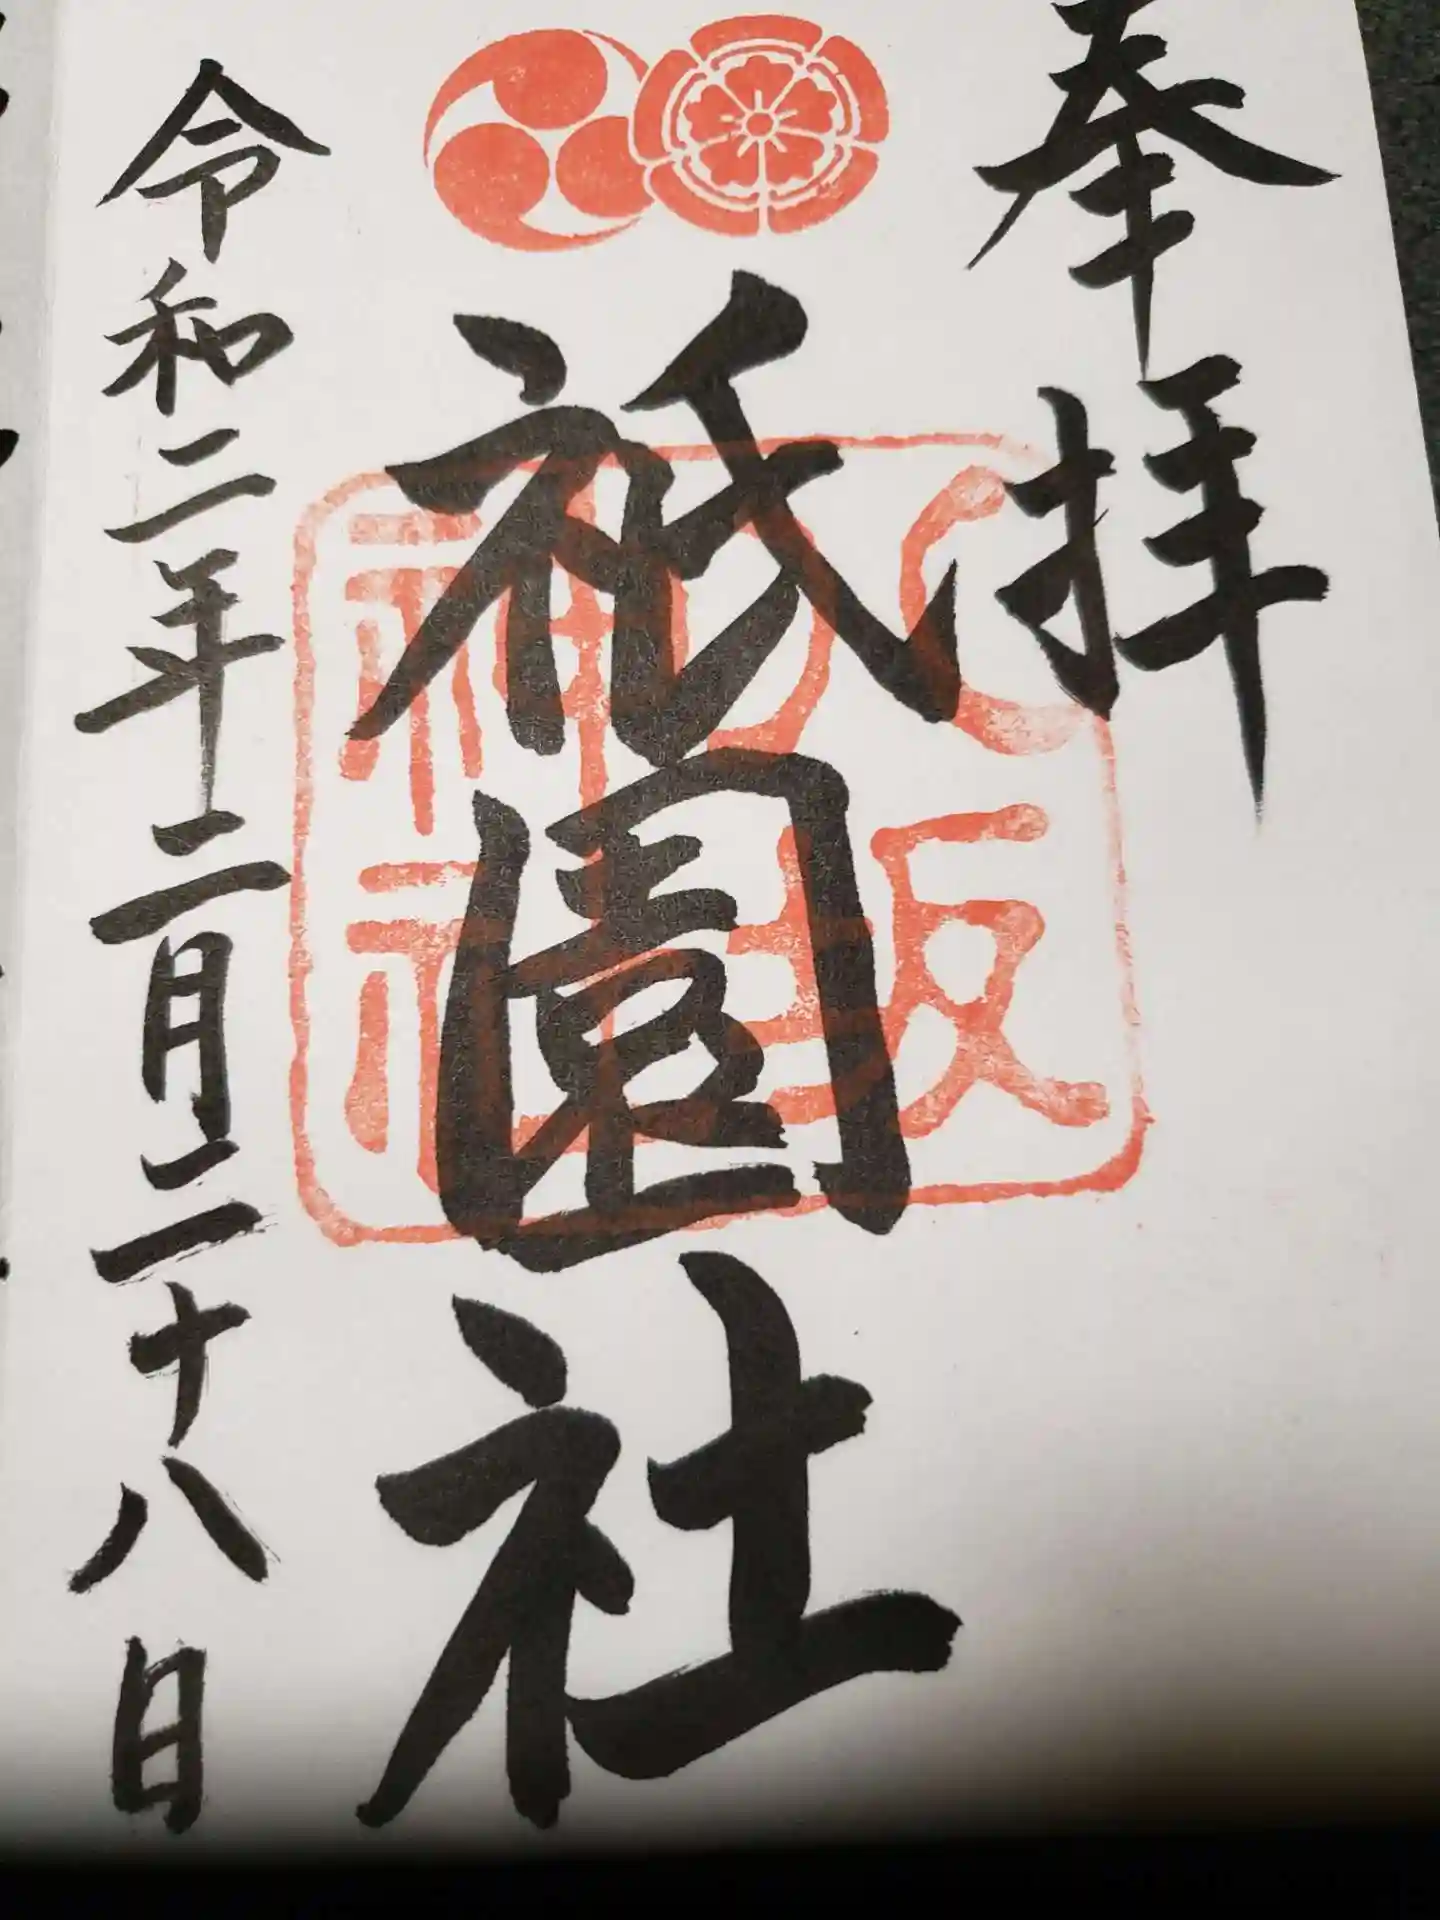 奉拝
祇園社
八坂神社
令和二年二月二十八日